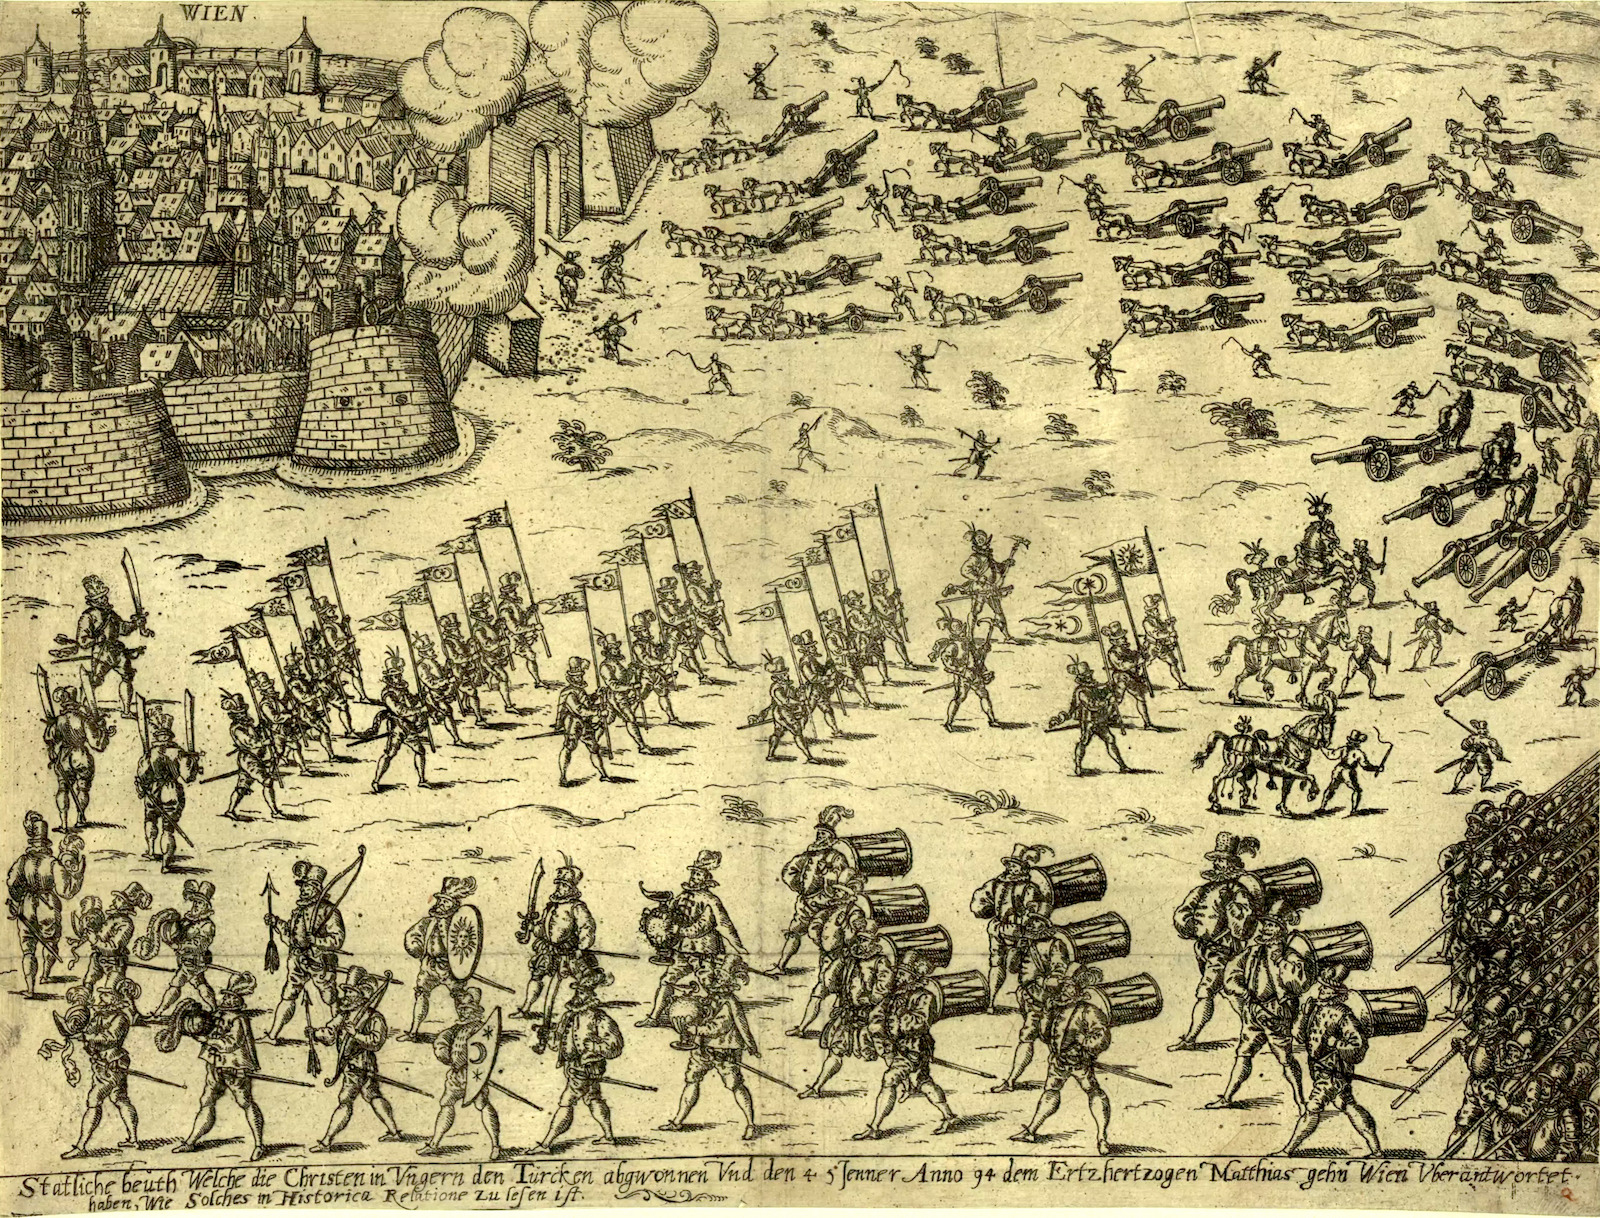 WIEN.
Statliche beuth Welche die Christen in Vngern den Türcken abgwonnen Vnd den 4 5 Jenner Anno 94 dem Ertzhertzogen Matthias gehn Wien Vberantwortet
haben, Wie Solches in Historica Relatione zu lesen ist.